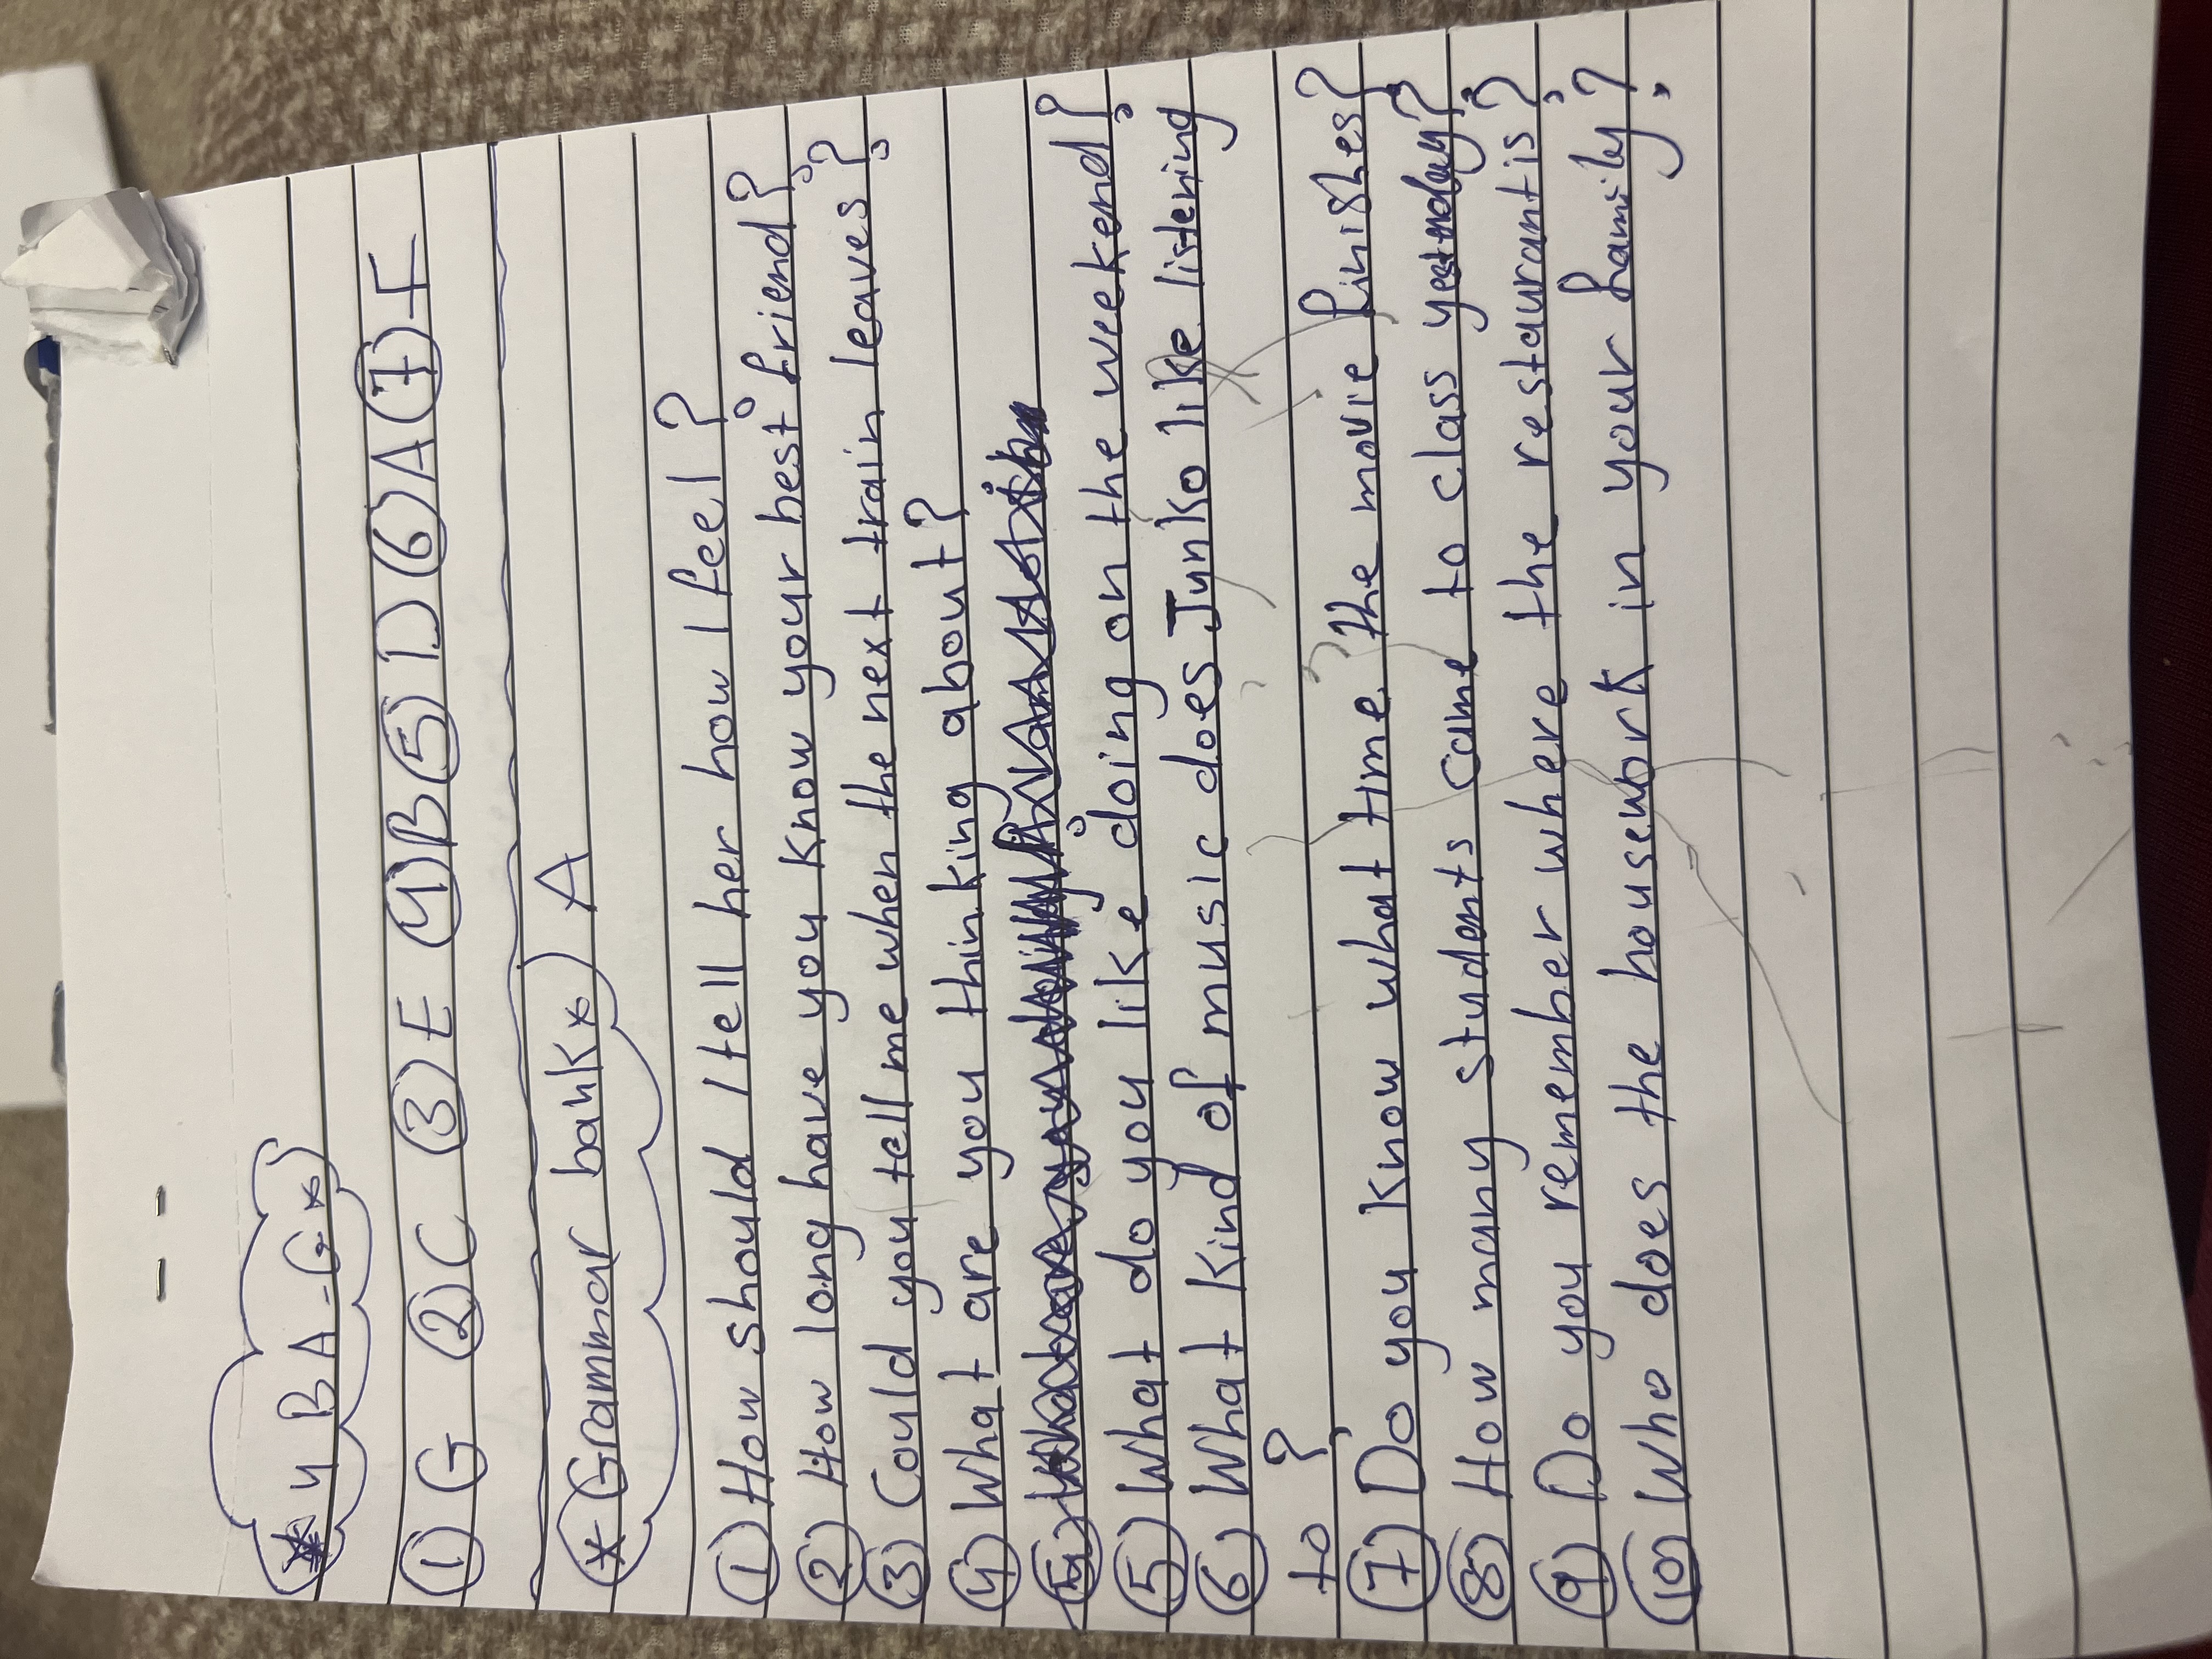 * 4 B A-G *
① G ② C ③ E ④ B ⑤ D ⑥ A ⑦ F
* Grammar bank * A
① How should I tell her how I feel?
② How long have you know your best friend?
③ Could you tell me when the next train leaves?
④ What are you thinking about?
⑤ What do you like doing on the weekend?
⑥ What kind of music does Junko like listening
to?
⑦ Do you know what time the movie finishes?
⑧ How many students came to class yesterday?
⑨ Do you remember where the restaurant is?
⑩ Who does the housework in your family?